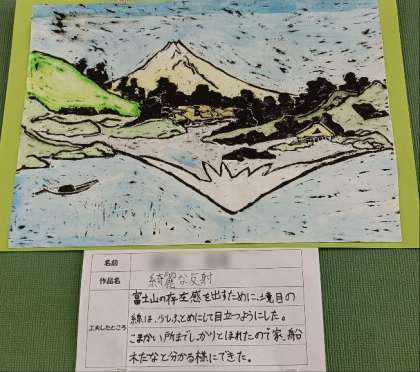 名前
作品名 綺麗な反射
工夫したところ
富士山の存在感を出すために、境目の
線は、少しふとめにして目立つようにした。
こまかい所までしっかりとほれたので家、船
木だなと分かる様にできた。